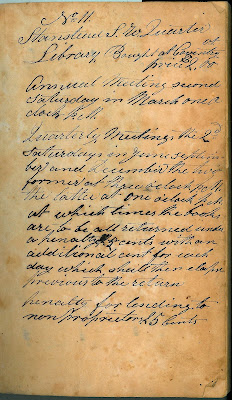 No 11.
Stanstead S. W. Quarter
Library Bought at
price $1,50
Annual Meeting second
Saturday in March one o
clock P.M
Quarterly Meetings, the 2d
Saturdays in June, septem
ber and december the two
former at three oclock P.M.
the latter at one oclock P.M.
at which times the books
are, to be all returned under
a penalty cents with an
additional cent for each
day which shall then elapse
previous to the return
penalty for lending to
non proprietors 25 cents